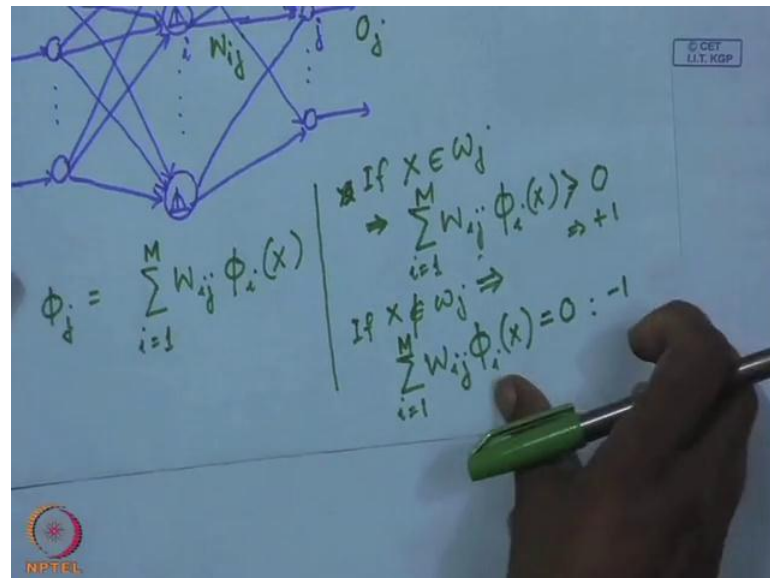 W_ij
i
j
O_j
© CET
I.I.T. KGP
ϕ_j = Σ_{i=1}^{M} W_ij ϕ_i(X)
If X ∈ ω_j
⇒ Σ_{i=1}^{M} W_ij ϕ_i(X) > 0
⇒ +1
If X ∉ ω_j ⇒
Σ_{i=1}^{M} W_ij ϕ_i(X) = 0 : -1
NPTEL